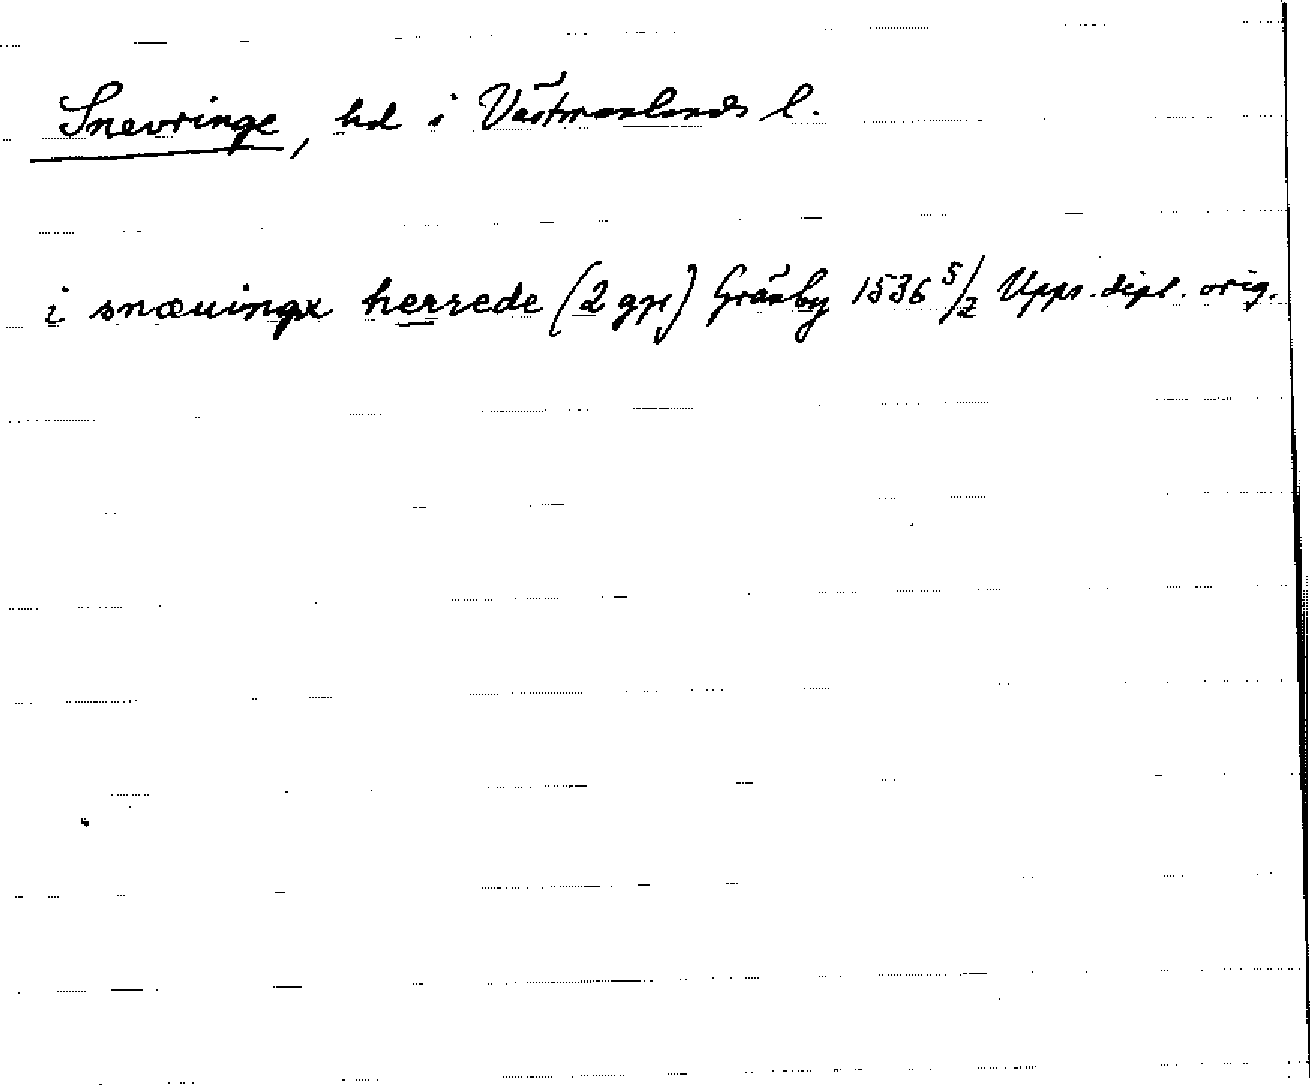 Snevringe, hd i Västmanlands l.
i snæuinge herrede (2 ggr) Gränby 1536 5/2 Upps. dipl. orig.